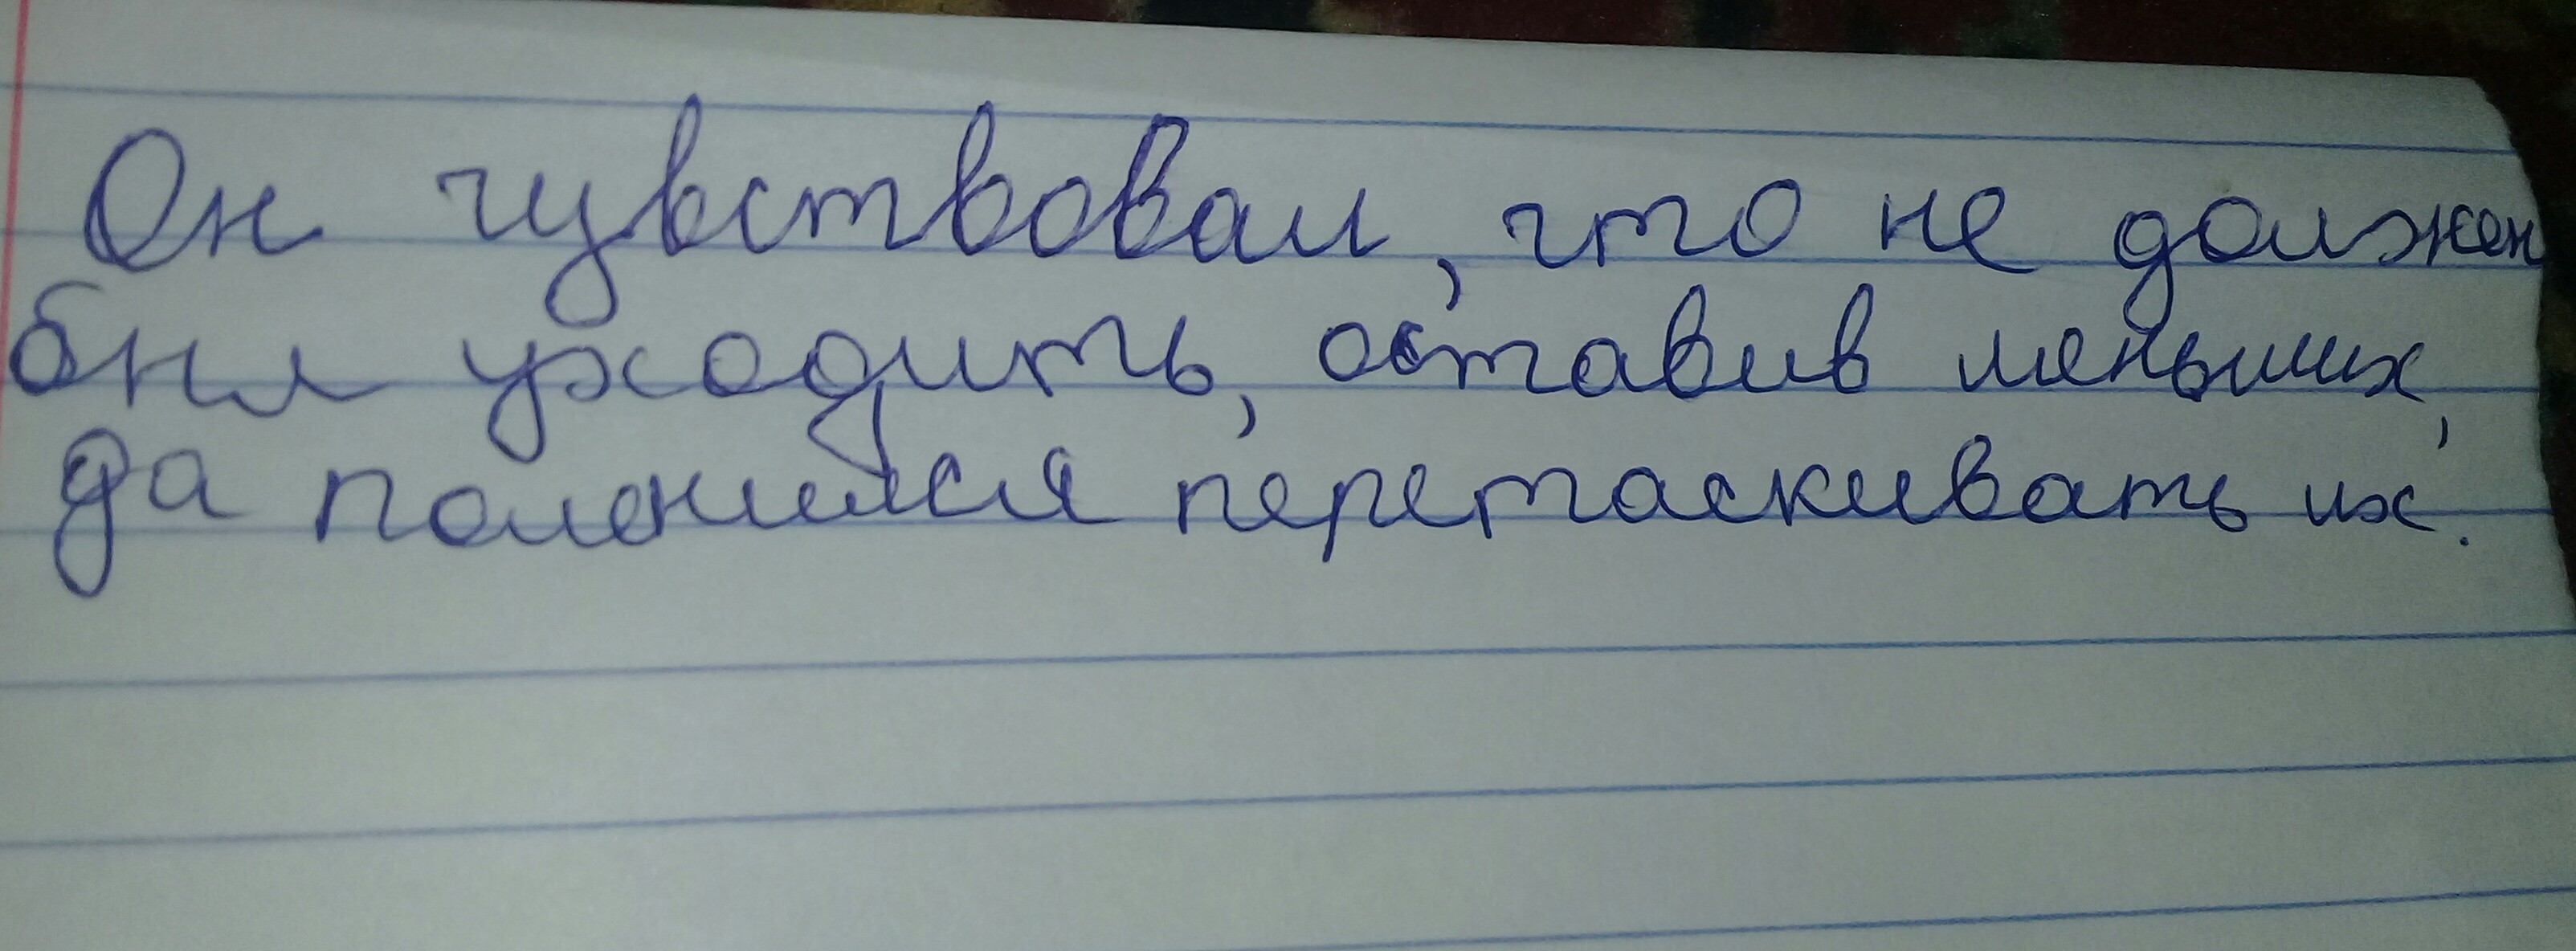 Он чувствовал, что не должен
был уходить, оставив меньших,
да поленился перетаскивать их.